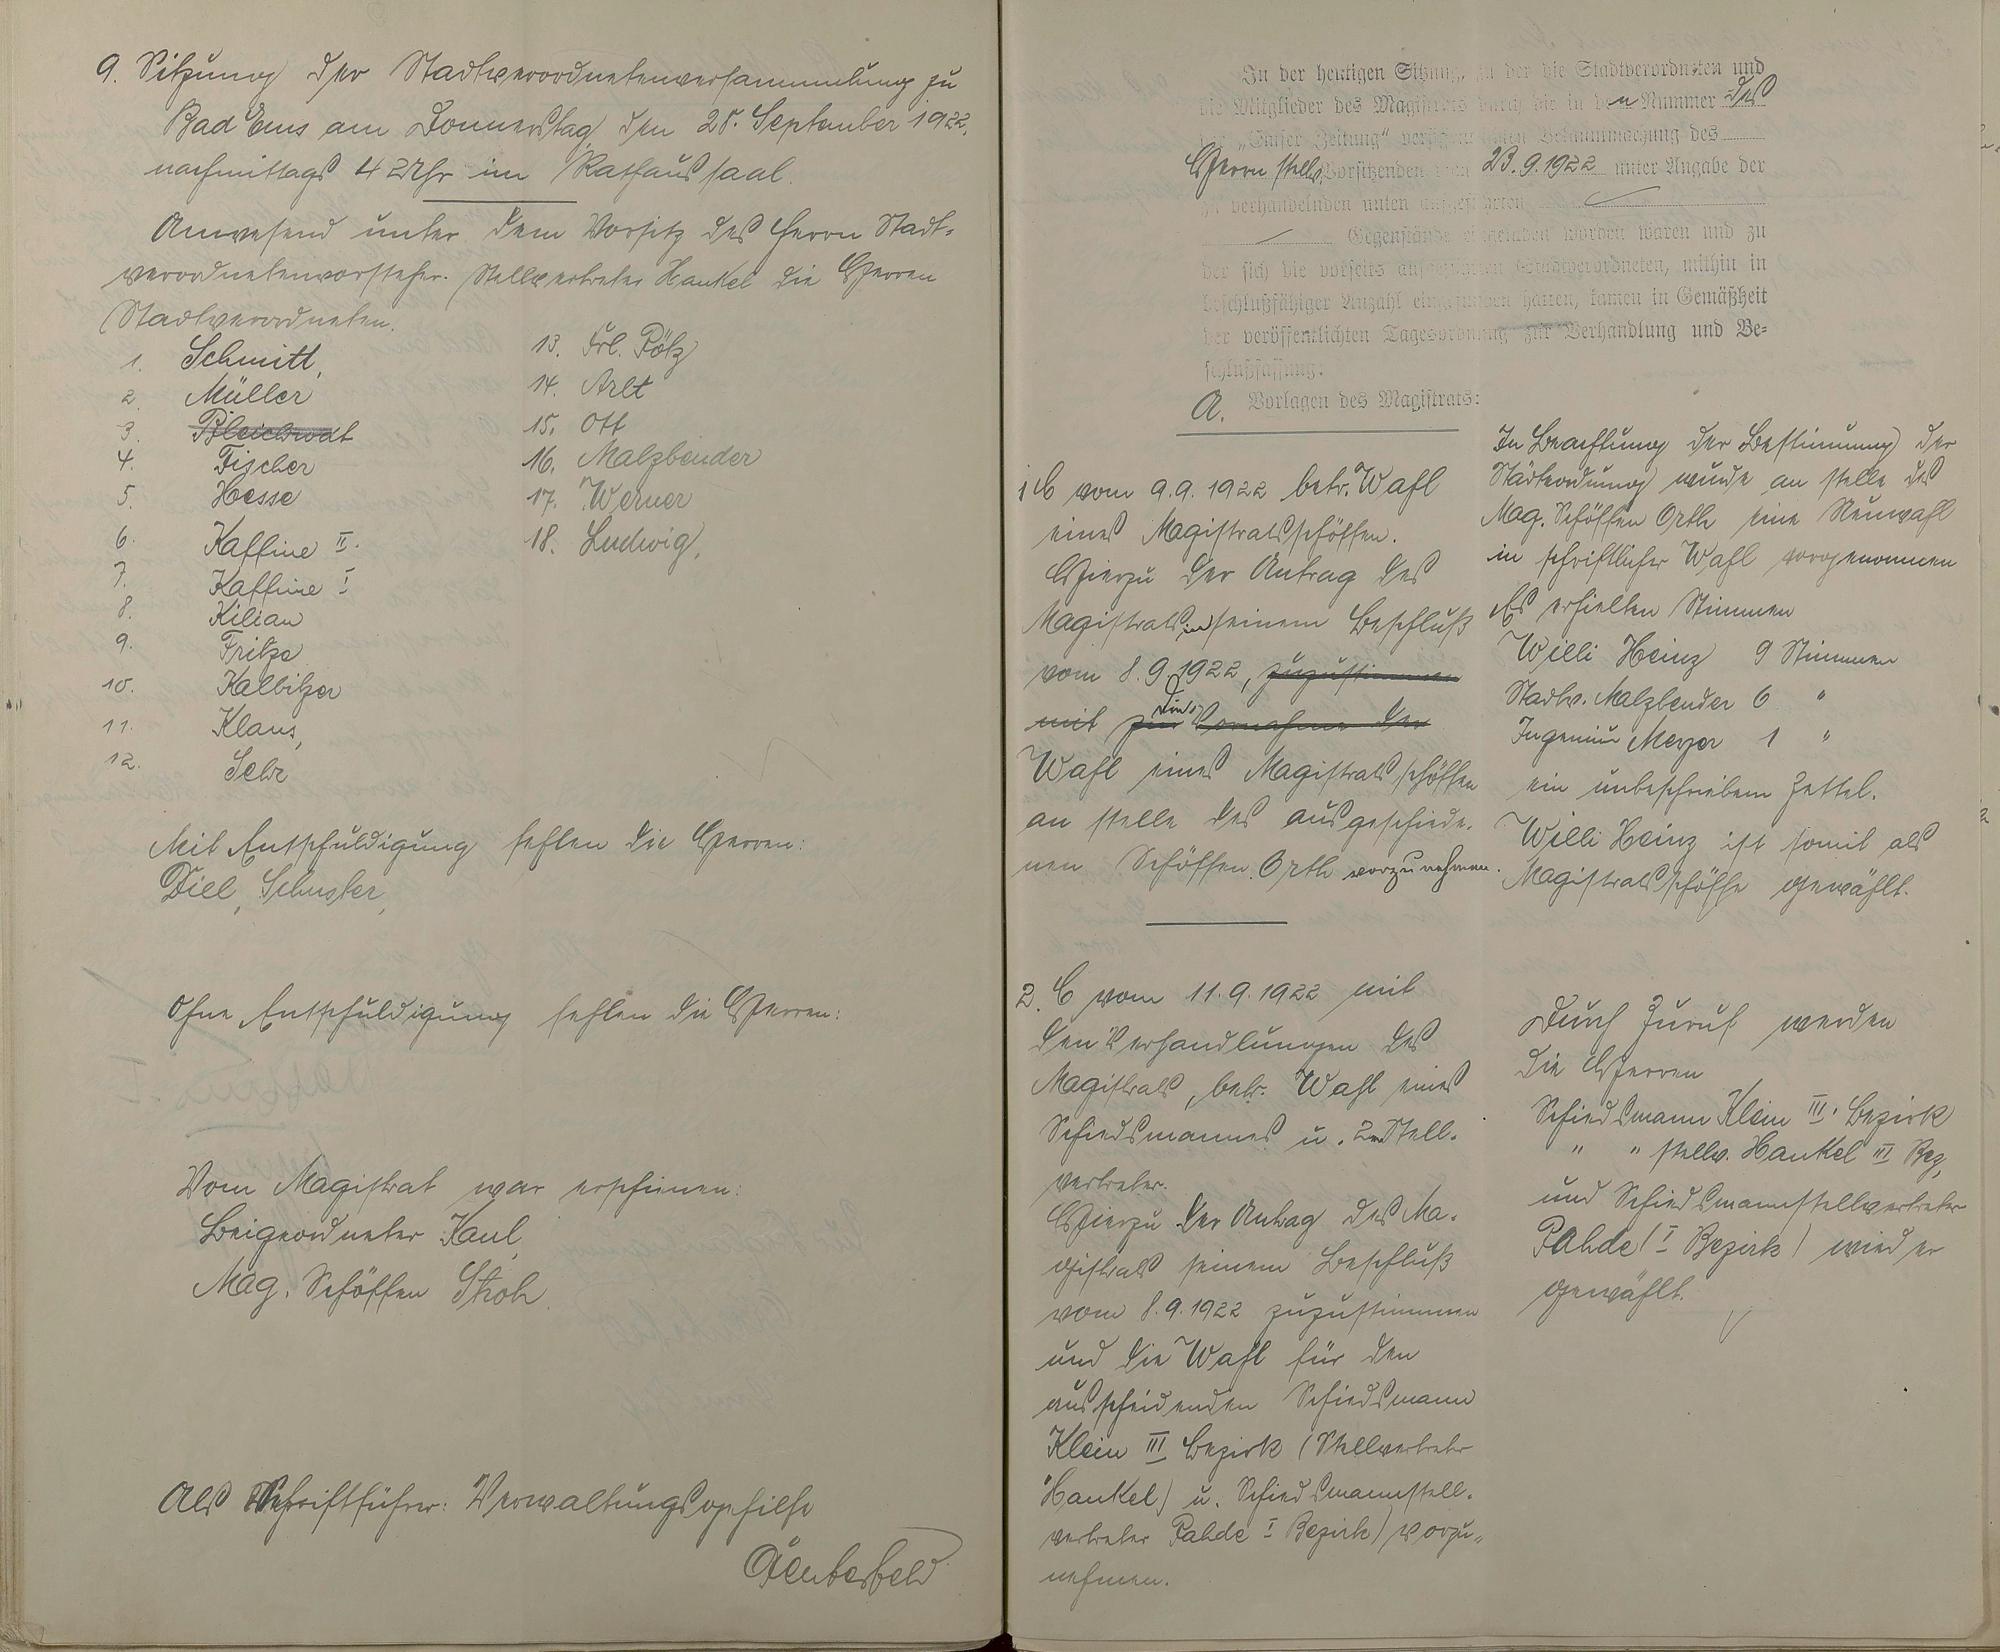 9. Sitzung der Stadtverordnetenversammlung zu
Bad Ems am Donnerstag, den 28. September 1922,
nachmittags 4 Uhr im Rathaussaal.
Anwesend unter dem Vorsitz des Herrn Stadt-
verordnetenvorsteher. Stellvertreter Hankel die Herren
Stadtverordneten.
1. Schmitt,
2. Müller
3. Bleichrodt
4. Fischer
5. Hesse
6. Kaffine II.
7. Kaffine I
8. Kilian
9. Fritze
10. Kalbitzer
11. Klaus,
12. Sehr
13. Frl. Pötz
14. Arlt
15. Ott
16. Malzbender
17. Werner
18. Ludwig,
Mit Entschuldigung fehlen die Herren:
Diel, Schuster,
Ohne Entschuldigung fehlen die Herren:
Vom Magistrat war erschienen:
Beigeordneter Kaul,
Mag. Schöffen Stroh
Als Schriftführer: Verwaltungsgehilfe
In der heutigen Sitzung, zu der die Stadtverordneten und
die Mitglieder des Magistrats durch die in den Nummer des
der „Emser Zeitung“ veröffentlichten Bekanntmachung des
Herrn stellv. Vorsitzenden vom 23.9.1922 unter Angabe der
zu verhandelnden unten aufgeführten
Gegenstände eingeladen worden waren und zu
der sich die vorseits aufgeführten Stadtverordneten, mithin in
beschlußfähiger Anzahl eingefunden hatten, kamen in Gemäßheit
der veröffentlichten Tagesordnung zur Verhandlung und Be-
schlußfassung:
A. Vorlagen des Magistrats:
1 C vom 9.9.1922 betr. Wahl
eines Magistratsschöffen.
Hierzu der Antrag des
Magistrats in seinem Beschluß
vom 8.9.1922, zuzustimmen
mit zur die Vornahme der
Wahl eines Magistratsschöffen
an stelle des ausgeschiede-
nen Schöffen Orth vorzunehmen.
In Beachtung der Bestimmung der
Städteordnung wurde an stelle des
Mag. Schöffen Orth eine Neuwahl
in schriftlicher Wahl vorgenommen
Es erhielten Stimmen
Willi Heinz 9 Stimmen
Stadtv. Malzbender 6 "
Ingenieur Meyer 1 "
ein unbeschriebem Zettel.
Willi Heinz ist somit als
Magistratsschöffe gewählt.
2. C vom 11.9.1922 mit
den Verhandlungen des
Magistrats, betr. Wahl eines
Schiedsmannes u. 2 Stell-
vertreter.
Hierzu der Antrag des Ma-
gistrats seinem Beschluß
vom 8.9.1922 zuzustimmen
und die Wahl für den
ausscheidenden Schiedsmann
Klein III Bezirk (Stellvertreter
Hankel) u. Schiedsmannstell-
vertreter Pahde I Bezirk) vorzu-
nehmen.
Durch Zuruf werden
die Herren
Schiedsmann Klein III. Bezirk
" " stellv. Hankel III Bez,
und Schiedsmannstellvertreter
Pahde (I Bezirk) wieder
gewählt.